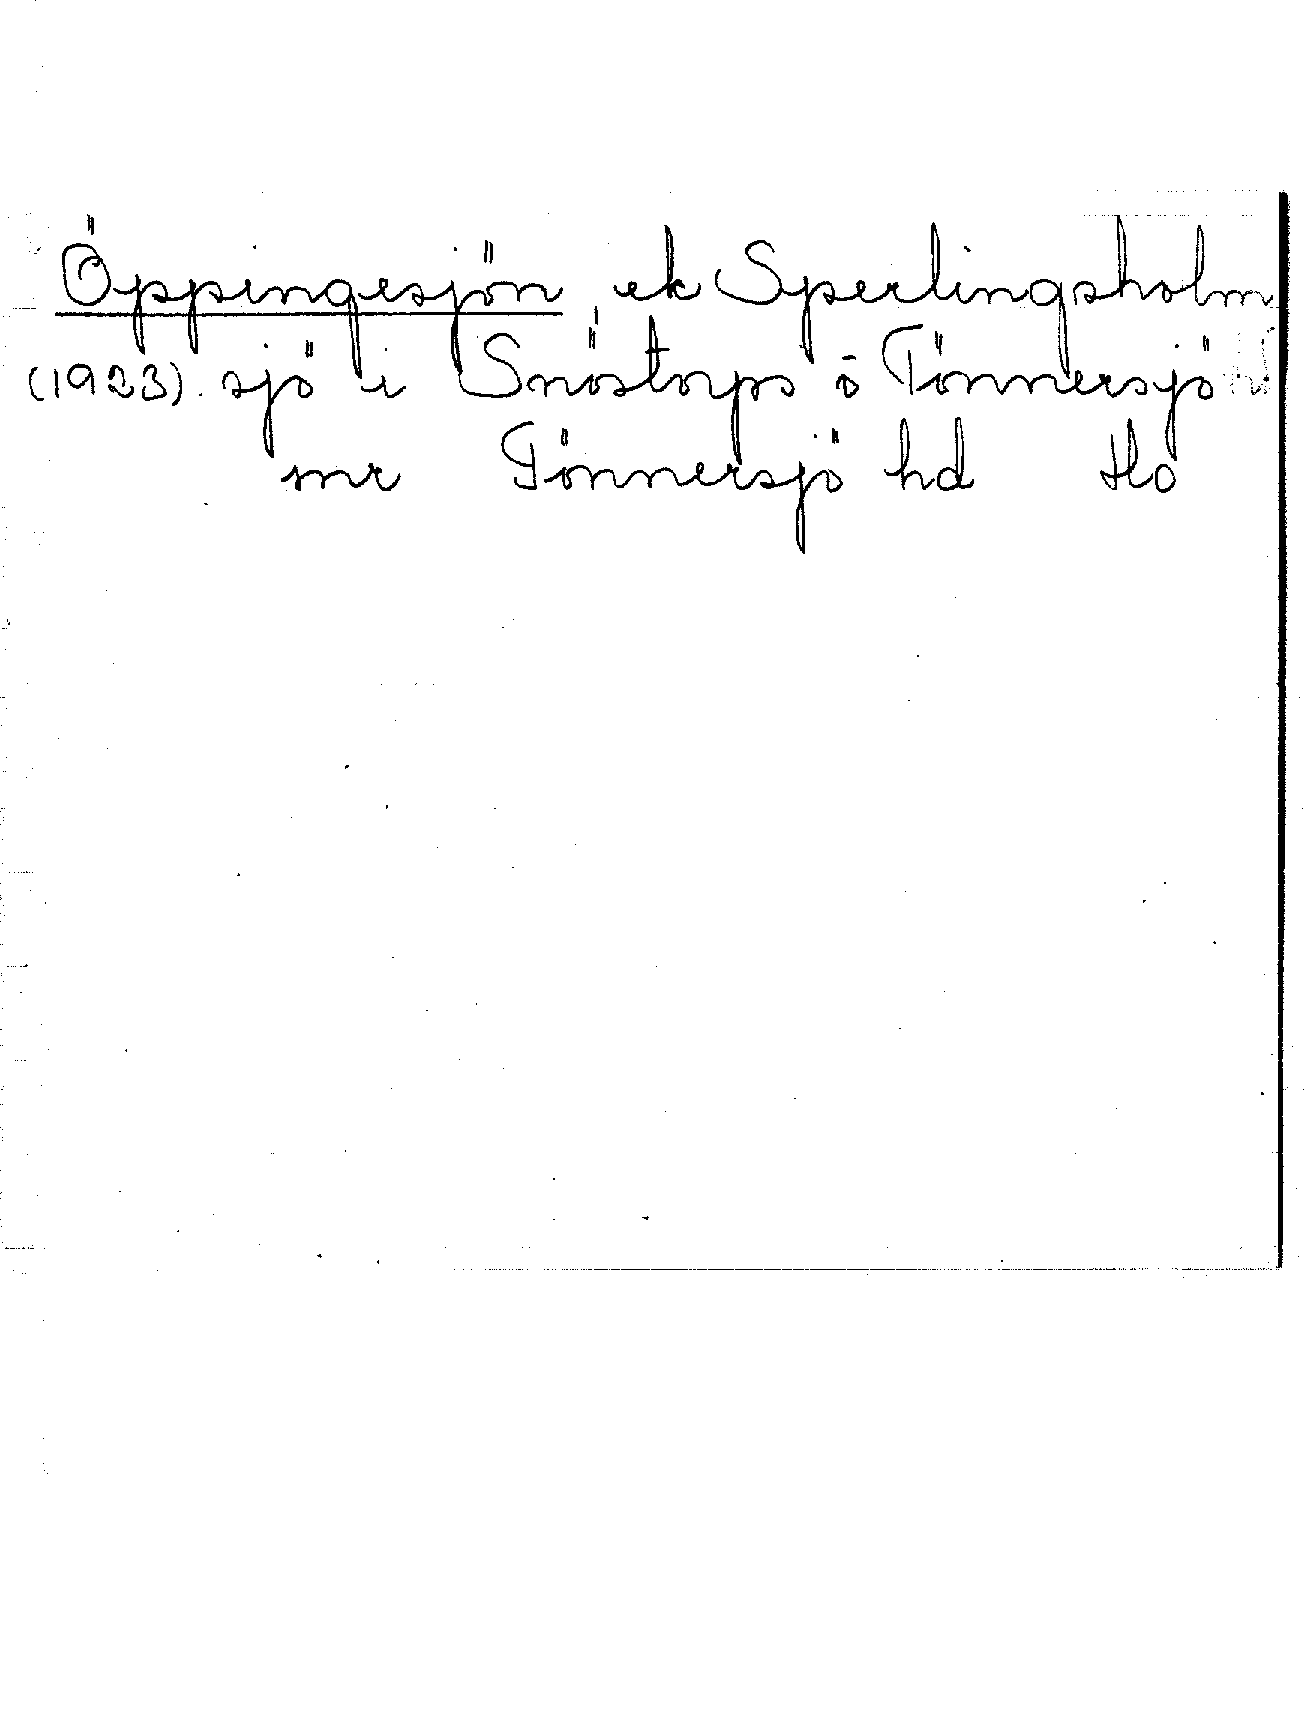 Öppingesjön, ek Sperlingsholm
(1923). sjö i Snöstorps o Tönnersjö
snr Tönnersjö hd Ho